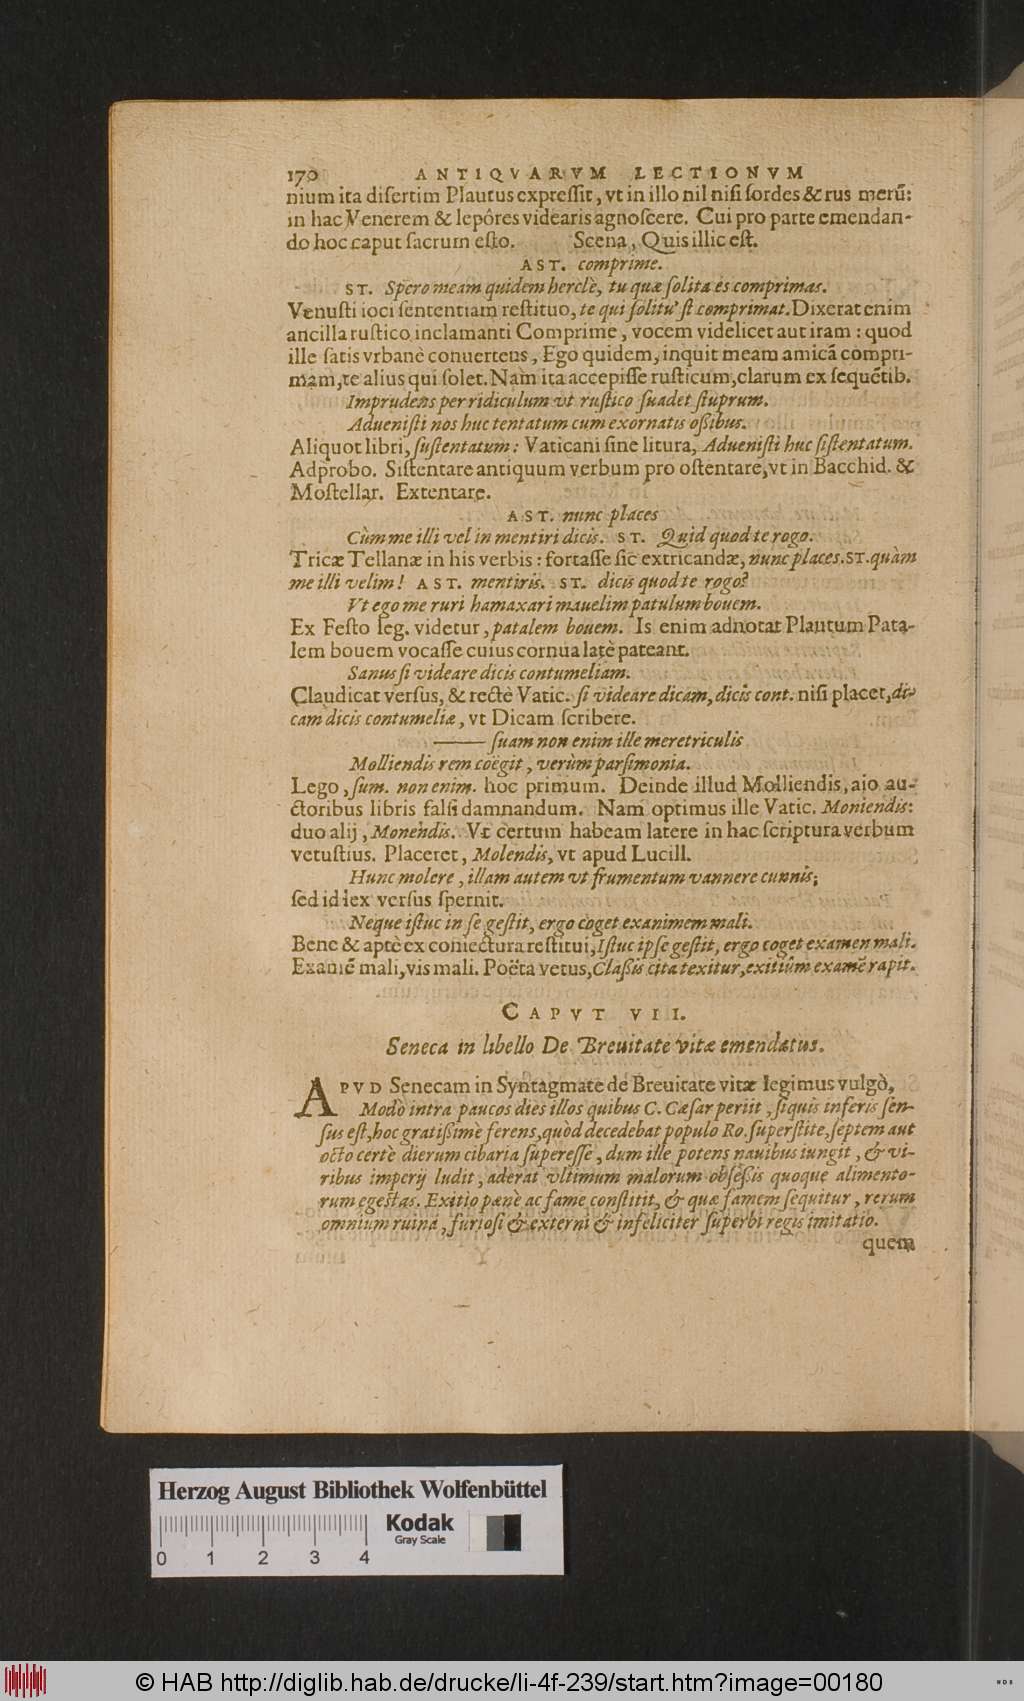 170 ANTIQVARVM LECTIONVM
nium ita disertim Plautus expressit, vt in illo nil nisi sordes & rus merũ:
in hac Venerem & lepôres videaris agnoscere. Cui pro parte emendan-
do hoc caput sacrum esto. Scena, Quis illic est.
AST. comprime.
ST. Spero meam quidem herclè, tu quæ solita es comprimas.
Venusti ioci sententiam restituo, te qui solitu' st comprimat. Dixerat enim
ancilla rustico inclamanti Comprime, vocem videlicet aut iram: quod
ille satis vrbanè conuertens, Ego quidem, inquit meam amicã compri-
mam, te alius qui solet. Nam ita accepisse rusticum, clarum ex sequẽtib.
Imprudens per ridiculum vt rustico suadet stuprum.
Aduenisti nos huc tentatum cum exornatis ossibus.
Aliquot libri, sustentatum: Vaticani sine litura, Aduenisti huc sistentatum.
Adprobo. Sistentare antiquum verbum pro ostentare, vt in Bacchid. &
Mostellar. Extentare.
AST. nunc places
Cùm me illi vel in mentiri dicis. ST. Quid quod te rogo.
Tricæ Tellanæ in his verbis: fortasse sic extricandæ, nunc places. ST. quàm
me illi velim! AST. mentiris. ST. dicis quod te rogo?
Vt ego me ruri hamaxari mauelim patulum bouem.
Ex Festo leg. videtur, patalem bouem. Is enim adnotat Plautum Pata-
lem bouem vocasse cuius cornua latè pateant.
Sanus si videare dicis contumeliam.
Claudicat versus, & rectè Vatic. si videare dicam, dicis cont. nisi placet, di-
cam dicis contumeliæ, vt Dicam scribere.
—— suam non enim ille meretriculis
Molliendis rem coëgit, verùm parsimonia.
Lego, sum. non enim. hoc primum. Deinde illud Molliendis, aio au-
ctoribus libris falsi damnandum. Nam optimus ille Vatic. Moniendis:
duo alij, Monendis. Vt certum habeam latere in hac scriptura verbum
vetustius. Placeret, Molendis, vt apud Lucill.
Hunc molere, illam autem vt frumentum vannere cunnis;
sed id lex versus spernit.
Neque istuc in se gestit, ergo coget exanimem mali.
Bene & aptè ex coniectura restitui, Istuc ipse gestit, ergo coget examen mali.
Examẽ mali, vis mali. Poëta vetus, Classis cita texitur, exitiûm examẽ rapit.
CAPVT VII.
Seneca in libello De Breuitate vitæ emendatus.
APVD Senecam in Syntagmate de Breuitate vitæ legimus vulgò,
Modò intra paucos dies illos quibus C. Cæsar periit, siquis inferis sen-
sus est, hoc gratissimè ferens, quòd decedebat populo Ro. superstite, septem aut
octo certè dierum cibaria superesse, dum ille potens nauibus iungit, & vi-
ribus imperij ludit, aderat vltimum malorum obsessis quoque alimento-
rum egestas. Exitio pænè ac fame constitit, & quæ famem sequitur, rerum
omnium ruina, furiosi & externi & infeliciter superbi regis imitatio.
quem
Herzog August Bibliothek Wolfenbüttel
Kodak
Gray Scale
0 1 2 3 4
© HAB http://diglib.hab.de/drucke/li-4f-239/start.htm?image=00180